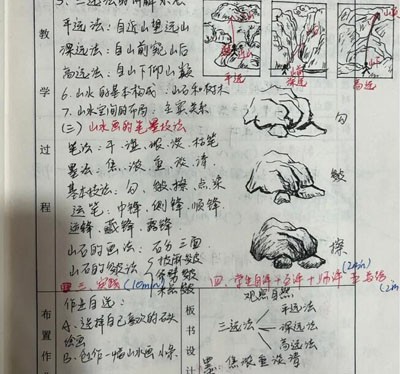 5、三远法的讲解示范
平远法：自近山望远山
深远法：自山前窥山后
高远法：自山下仰山巅
平远
深远
高远
6、山水的基本构成：山石和树木
7、山水空间的布局：主宾关系
(三) 山水画的笔墨技法
笔法：干、湿、浓、淡、枯笔
墨法：焦、浓、重、淡、清
基本技法：勾、皴、擦、点、染
运笔：中锋、侧锋、顺锋
逆锋、藏锋、露锋
山石的画法：石分三面
山石的皴法
披麻皴
斧劈皴
勾
皴
擦
教学过程
三、实践 (10min)
四、学生自评+互评+师评
(2min)
布置作
作业自选：
A、选择自己喜欢的石头
绘画
B、创作一幅山水画小条
板书设
观照自然
三远法
平远法
深远法
高远法
墨：焦浓重淡清